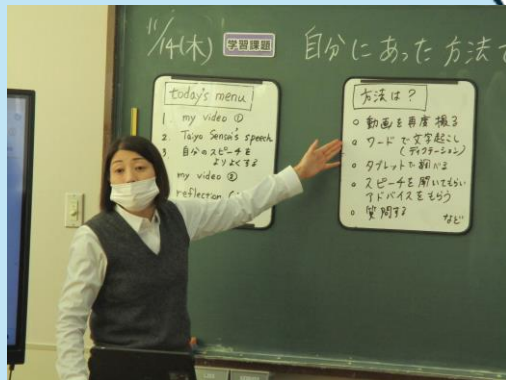 11/14(木) 学習課題 自分にあった方法で
today's menu
1. my video ①
2. Taiyo Sensei's speech
3 自分のスピーチを
よりよくする
my video ②
reflection
方法は?
○ 動画を再度撮る
○ ワードで文字起こし
(ディクテーション)
○ タブレットで調べる
○ スピーチを聞いてもらい
アドバイスをもらう
○ 質問する
など